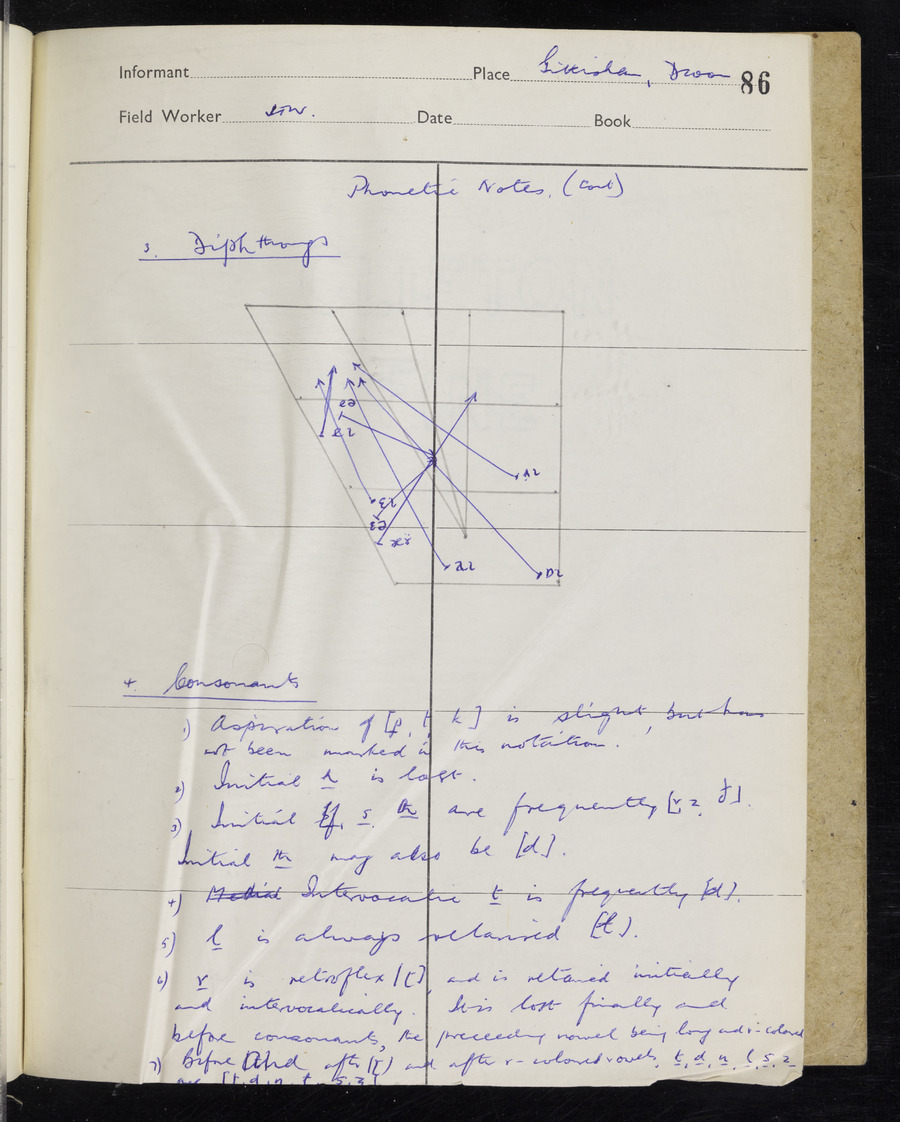 Informant Place Gittisham, Devon 86
Field Worker STW. Date Book
Phonetic Notes. (Cont)
3. Diphthongs
ɛɪ
æɪ
ɒɪ
4. Consonants
1) Aspiration of [p, t, k] is slight, but has
not been marked in this notation.
2) Initial h is lost.
3) Initial f, s, th are frequently [v, z, ð].
Initial th may also be [d].
4) Medial Intervocalic t is frequently [d].
5) l is always velarised [ɫ].
6) r is retroflex [ɽ] and is retained initially
and intervocalically. It is lost finally and
before consonants, the preceding vowel being long and r-coloured
7) Before and after [ɽ] and after r-coloured vowels, t, d, n, l, s, z
are